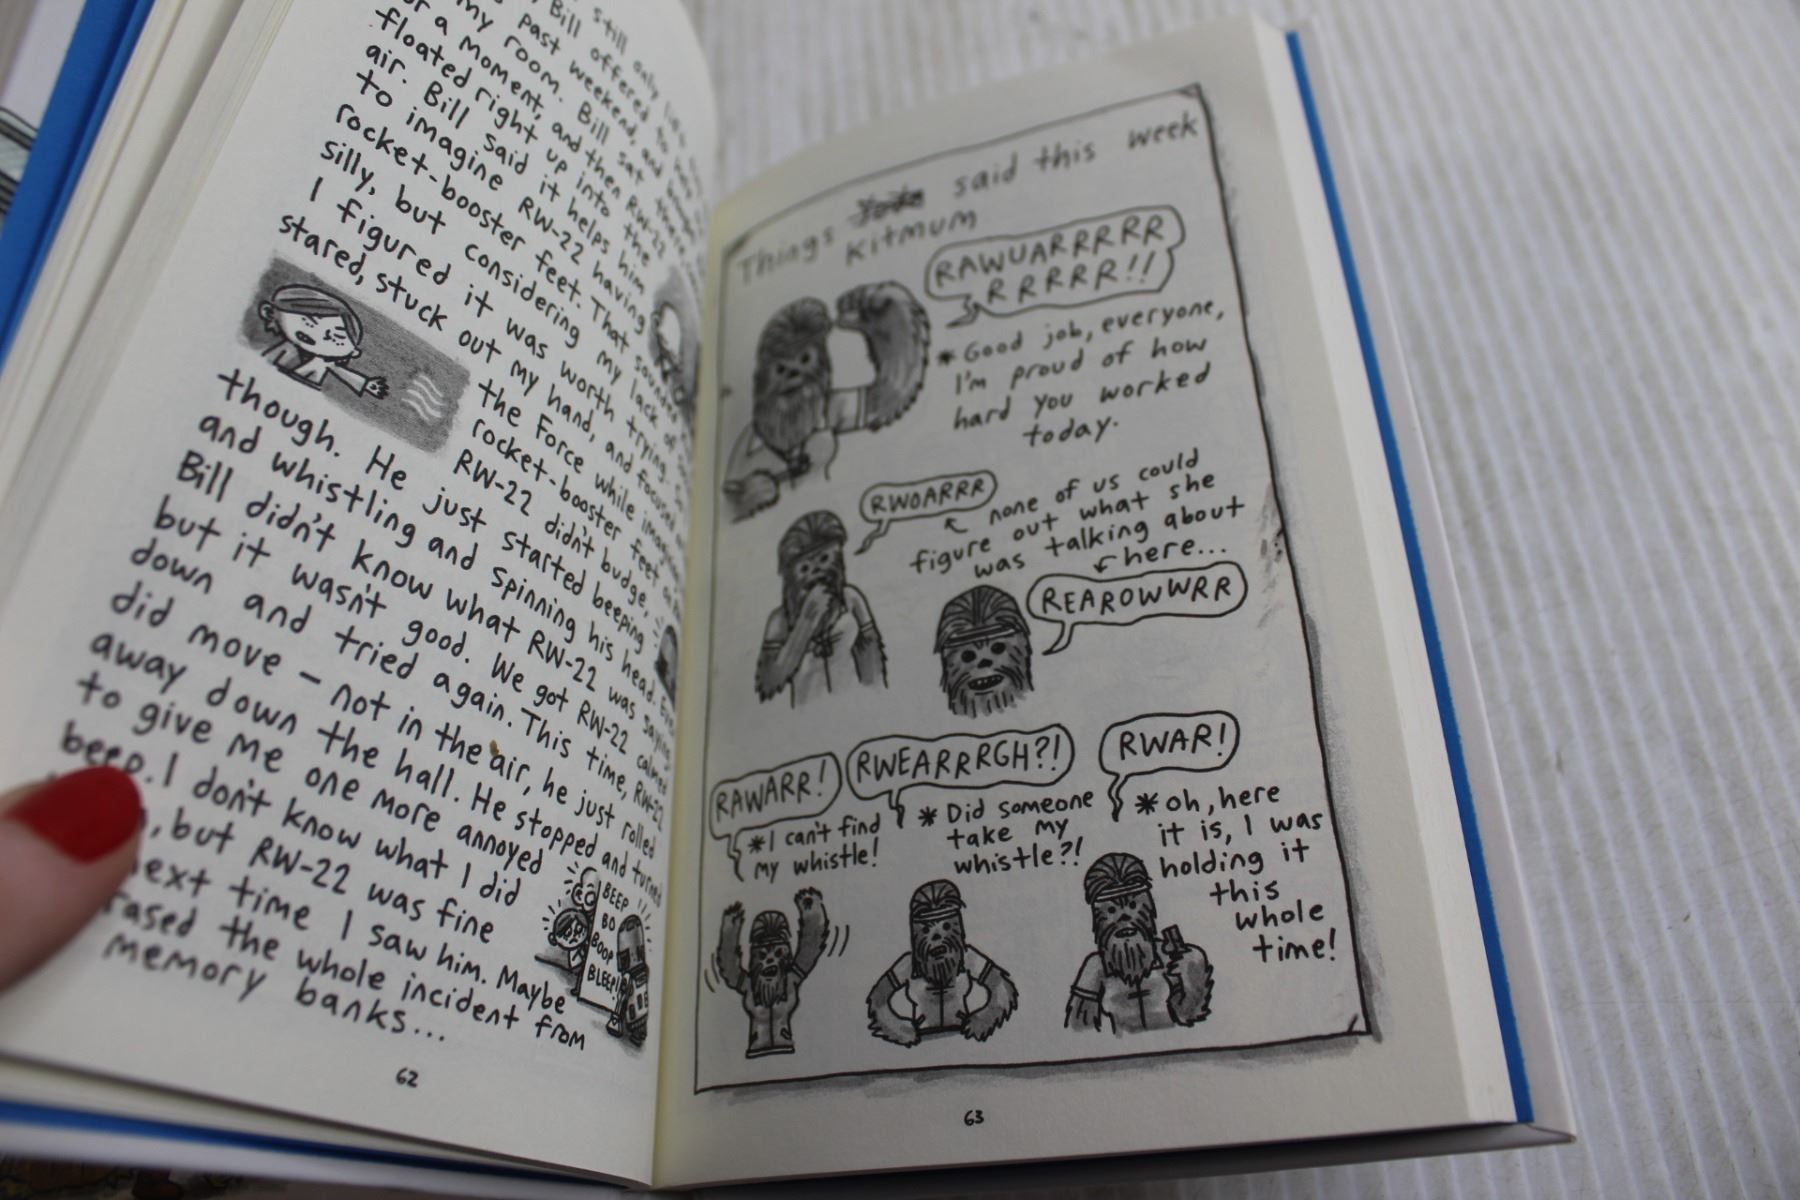 Bill still only
past weekend, and
my room. Bill sat there
for a moment, and then RW-22
floated right up into the
air. Bill said it helps him
to imagine RW-22 having
rocket-booster feet. That sounded
silly, but considering my lack of
I figured it was worth trying.
stared, stuck out my hand, and focused
the Force while
rocket-booster feet
RW-22 didn't budge,
though. He just started beeping
and whistling and spinning his head.
Bill didn't know what RW-22 was saying
but it wasn't good. We got RW-22 calmed
down and tried again. This time, RW-22
did move - not in the air, he just rolled
away down the hall. He stopped and turned
to give me one more annoyed
beep. I don't know what I did
but RW-22 was fine
next time I saw him. Maybe
the whole incident from
memory banks...
BEEP
BO
BOOP
BLEEP!
62
Things Yoda said this week
Kitmum
RAWUARRRRR
RRRRR!!
*Good job, everyone,
I'm proud of how
hard you worked
today.
RWOARRR
none of us could
figure out what she
was talking about
here...
REAROWWRR
RAWARR!
*I can't find
my whistle!
RWEARRRGH?!
*Did someone
take my
whistle?!
RWAR!
*oh, here
it is, I was
holding it
this
whole
time!
63